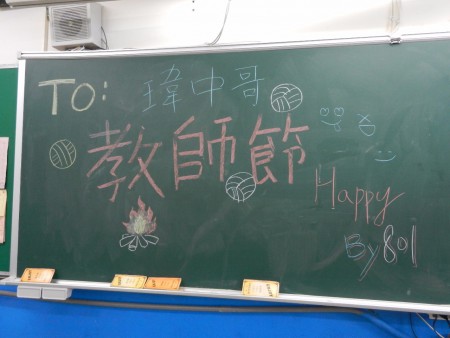 TO: 瑋中哥
教師節
Happy
By 801